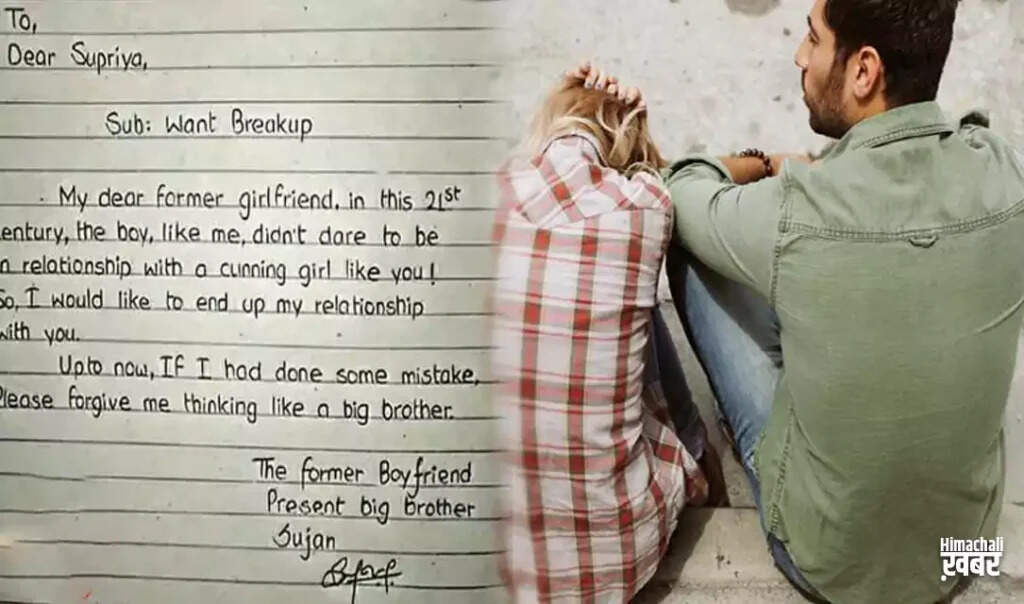 To,
Dear Supriya,
Sub: Want Breakup
My dear former girlfriend, in this 21st
entury, the boy, like me, didn't dare to be
n relationship with a cunning girl like you!
So, I would like to end up my relationship
with you.
Upto now, If I had done some mistake,
lease forgive me thinking like a big brother.
The former Boyfriend
Present big brother
Sujan
Himachali
ख़बर